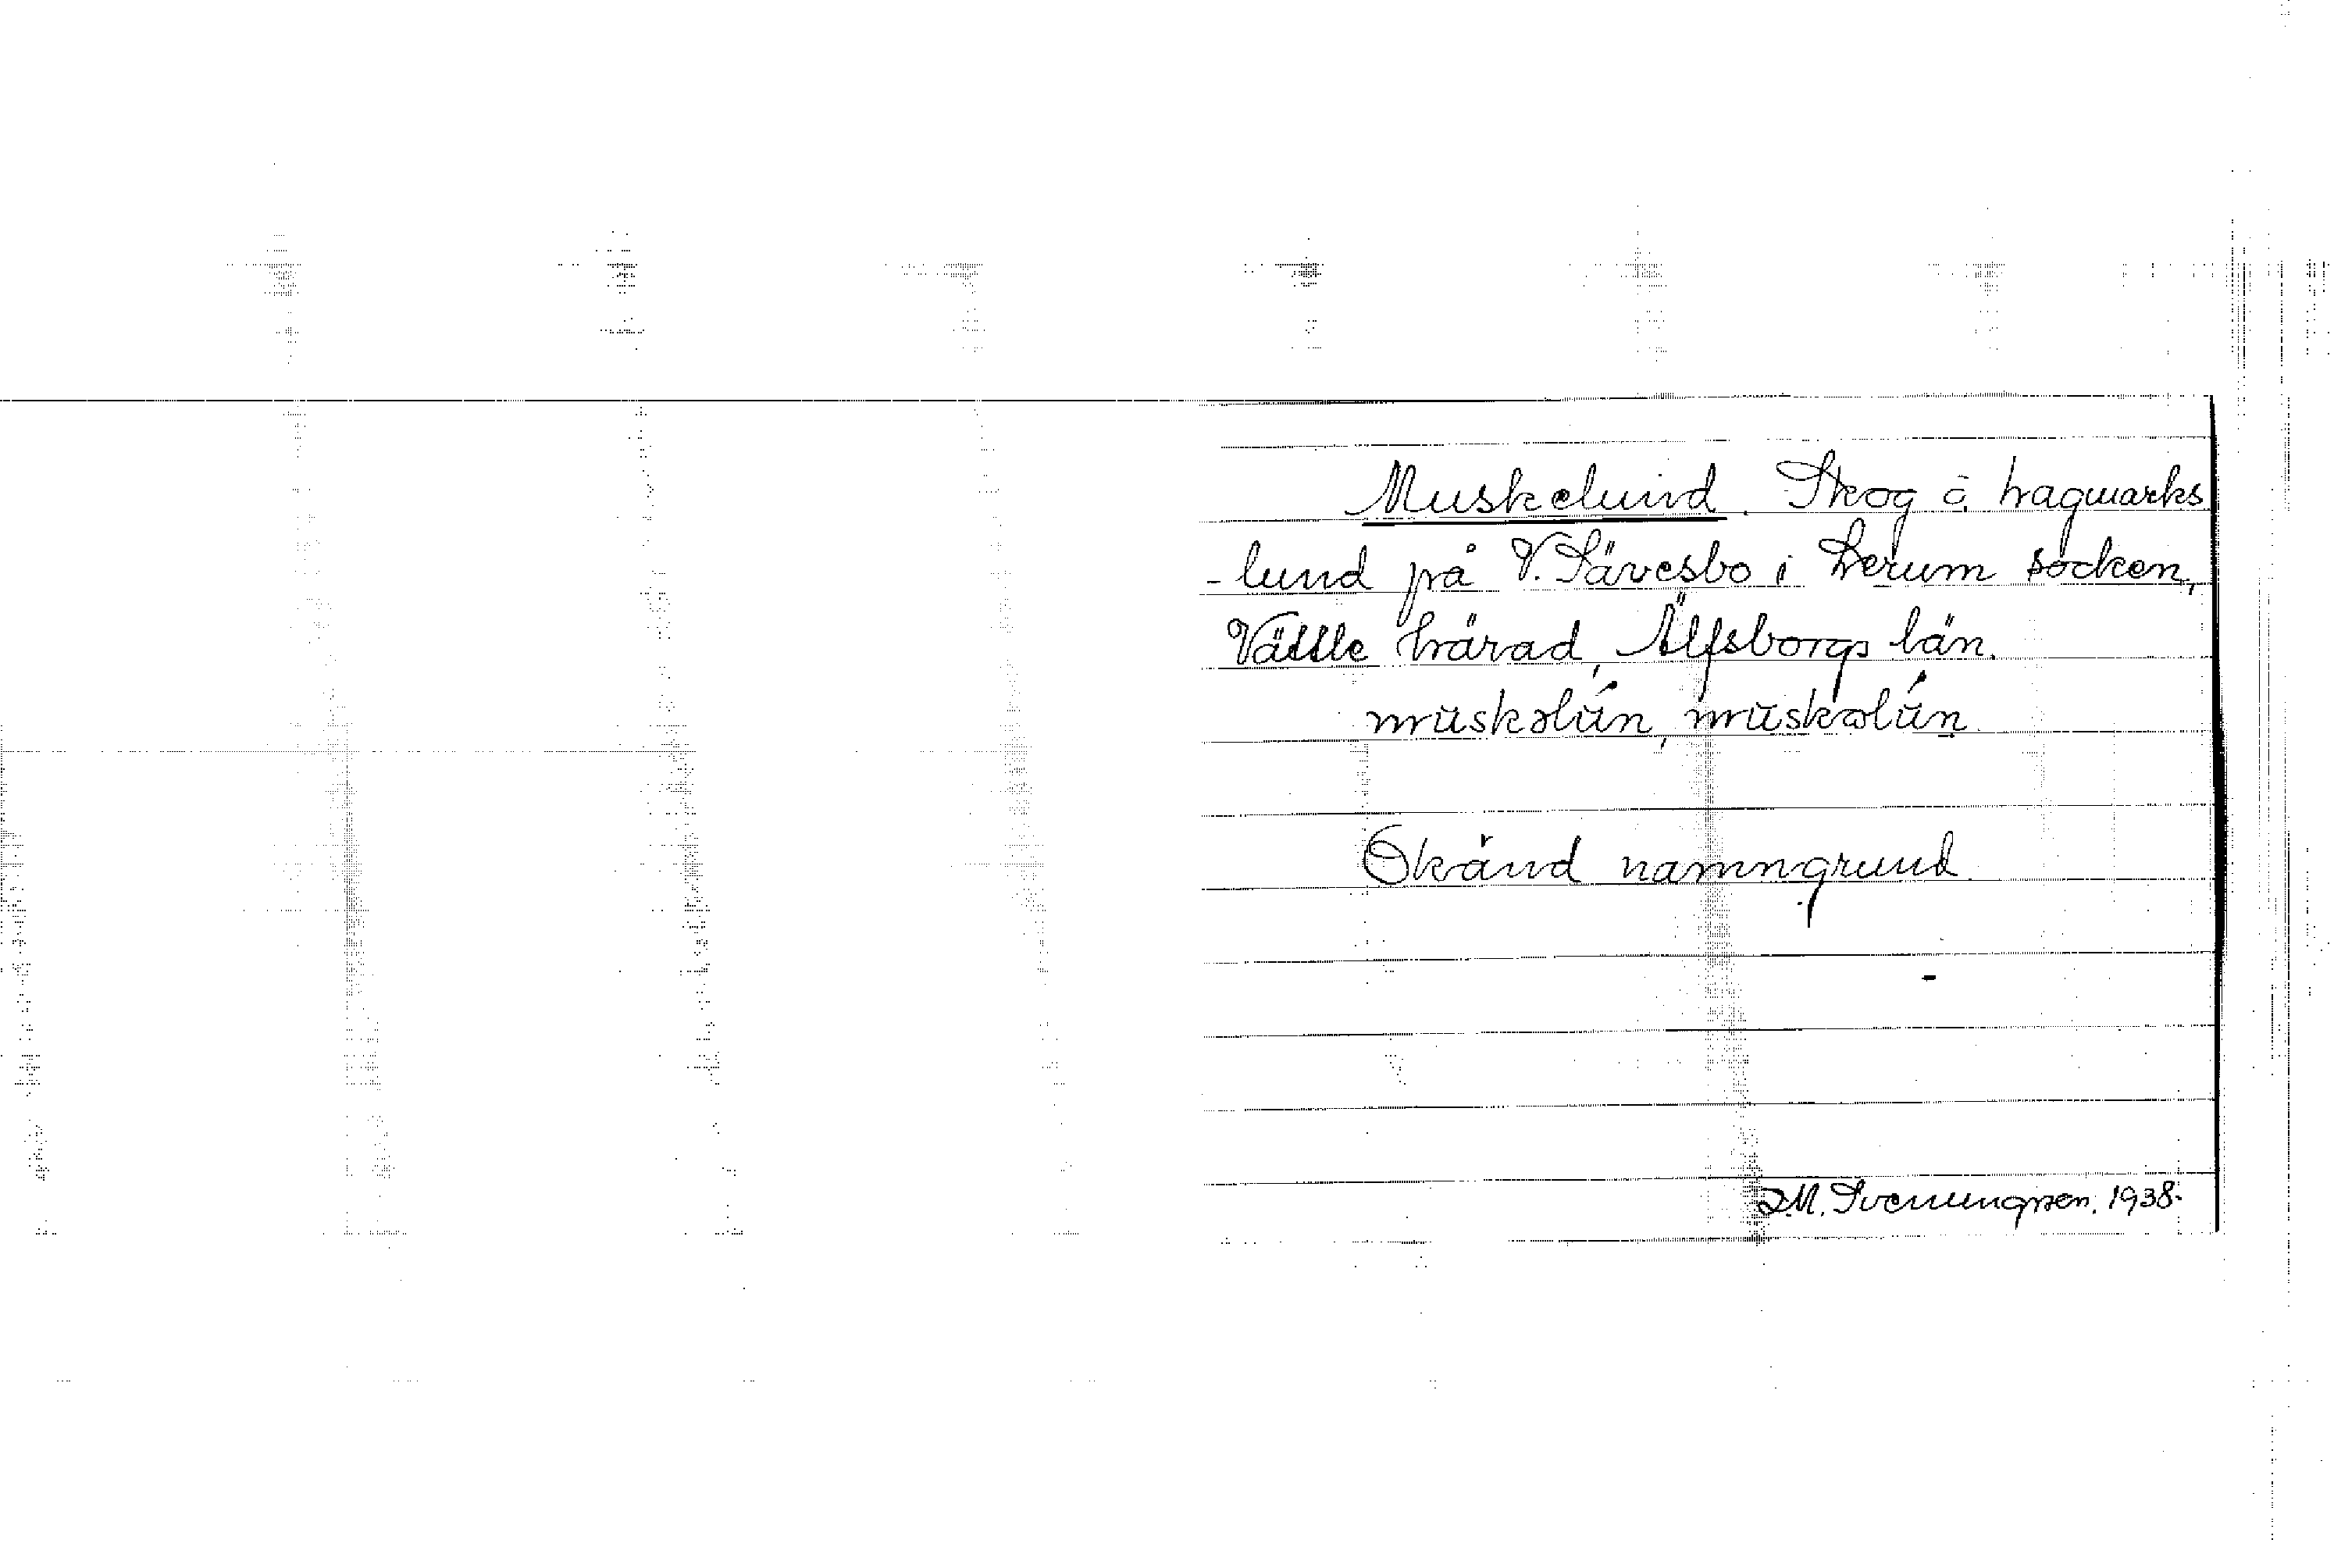 Muskelund. Skog å hagmarks
-lund på V. Sävesbo i Lerum socken,
Vättle härad, Älfsborgs län.
mŭskəlún, mŭskəlún.
Okänd namngrund.
D.M. Svenungsen. 1938.